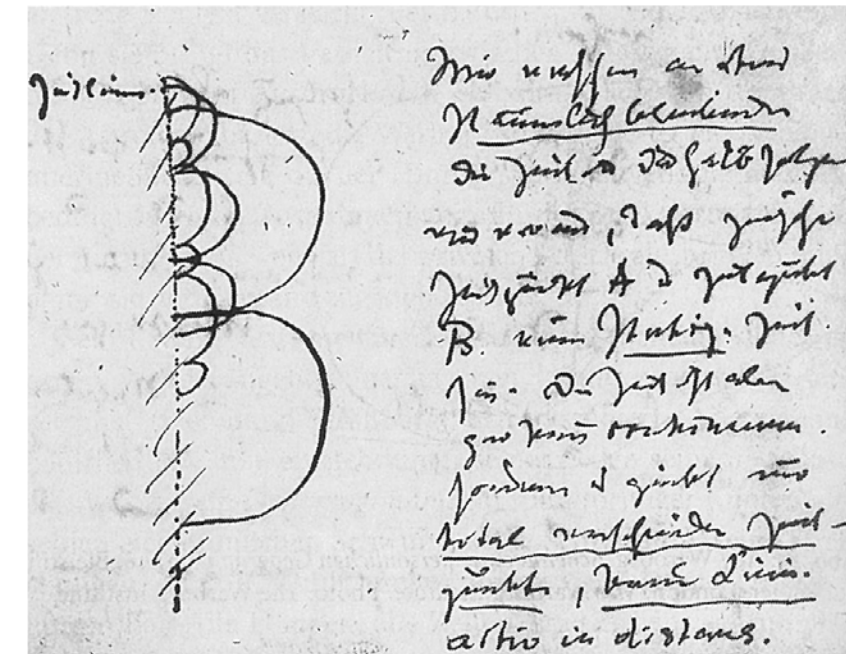 Zeitlinie.
Wir messen an etwas
Räumlich bleibendem
die Zeit u deshalb setzen
wir voraus, daß zwische
Zeitpunkt A u Zeitpunkt
B. eine stetig. Zeit
sei. Die Zeit ist aber
gar kein continuum.
sondern es giebt nur
total verschiedne Zeit-
punkte, keine Linie.
actio in distans.